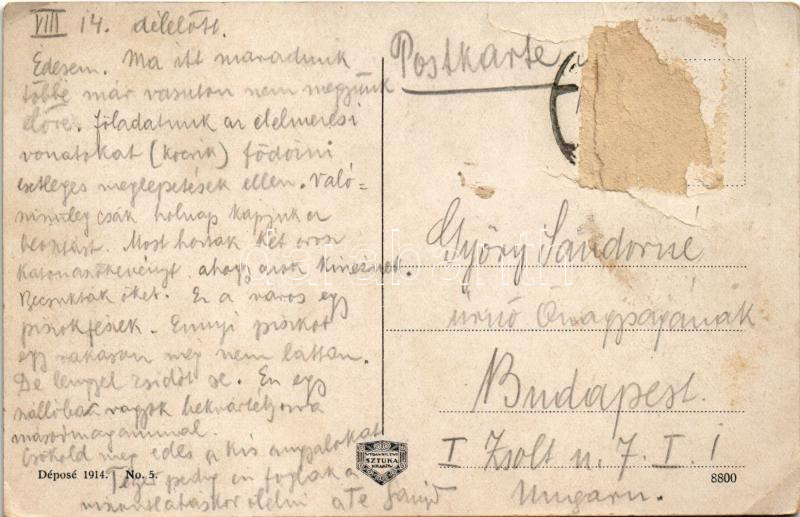 VIII 14. délelőtt.
Édesem. Ma itt maradunk
többé már vasuton nem megyünk
előre. Föladatunk az élelmezési
vonatokat (kocsik) födözni
esetleges meglepetések ellen. Való-
szinüleg csák holnap kapjuk a
beosztást. Most hoztak két orosz
katonaszökevényt, ahogy azok kinéznek.
Becsukták őket. Ez a város egy
piszokfészek. Ennyi piszkot
egy rakáson még nem láttam.
De lengyel zsidót se. Én egy
szállóban vagyok bekvártélyozva
másodmagammal.
Csókold meg édes a kis angyalokat
Téged pedig én foglak a
viszontlátáskor ölelni a Te
Postkarte
Győry Sandorné
úrnő Őnagyságának
Budapest.
I Zsolt u. 7. I. 1
Ungarn.
WYDAWNICTWO
SZTUKA
KRAKÓW
Déposé 1914. No. 5.
8800
darabanth